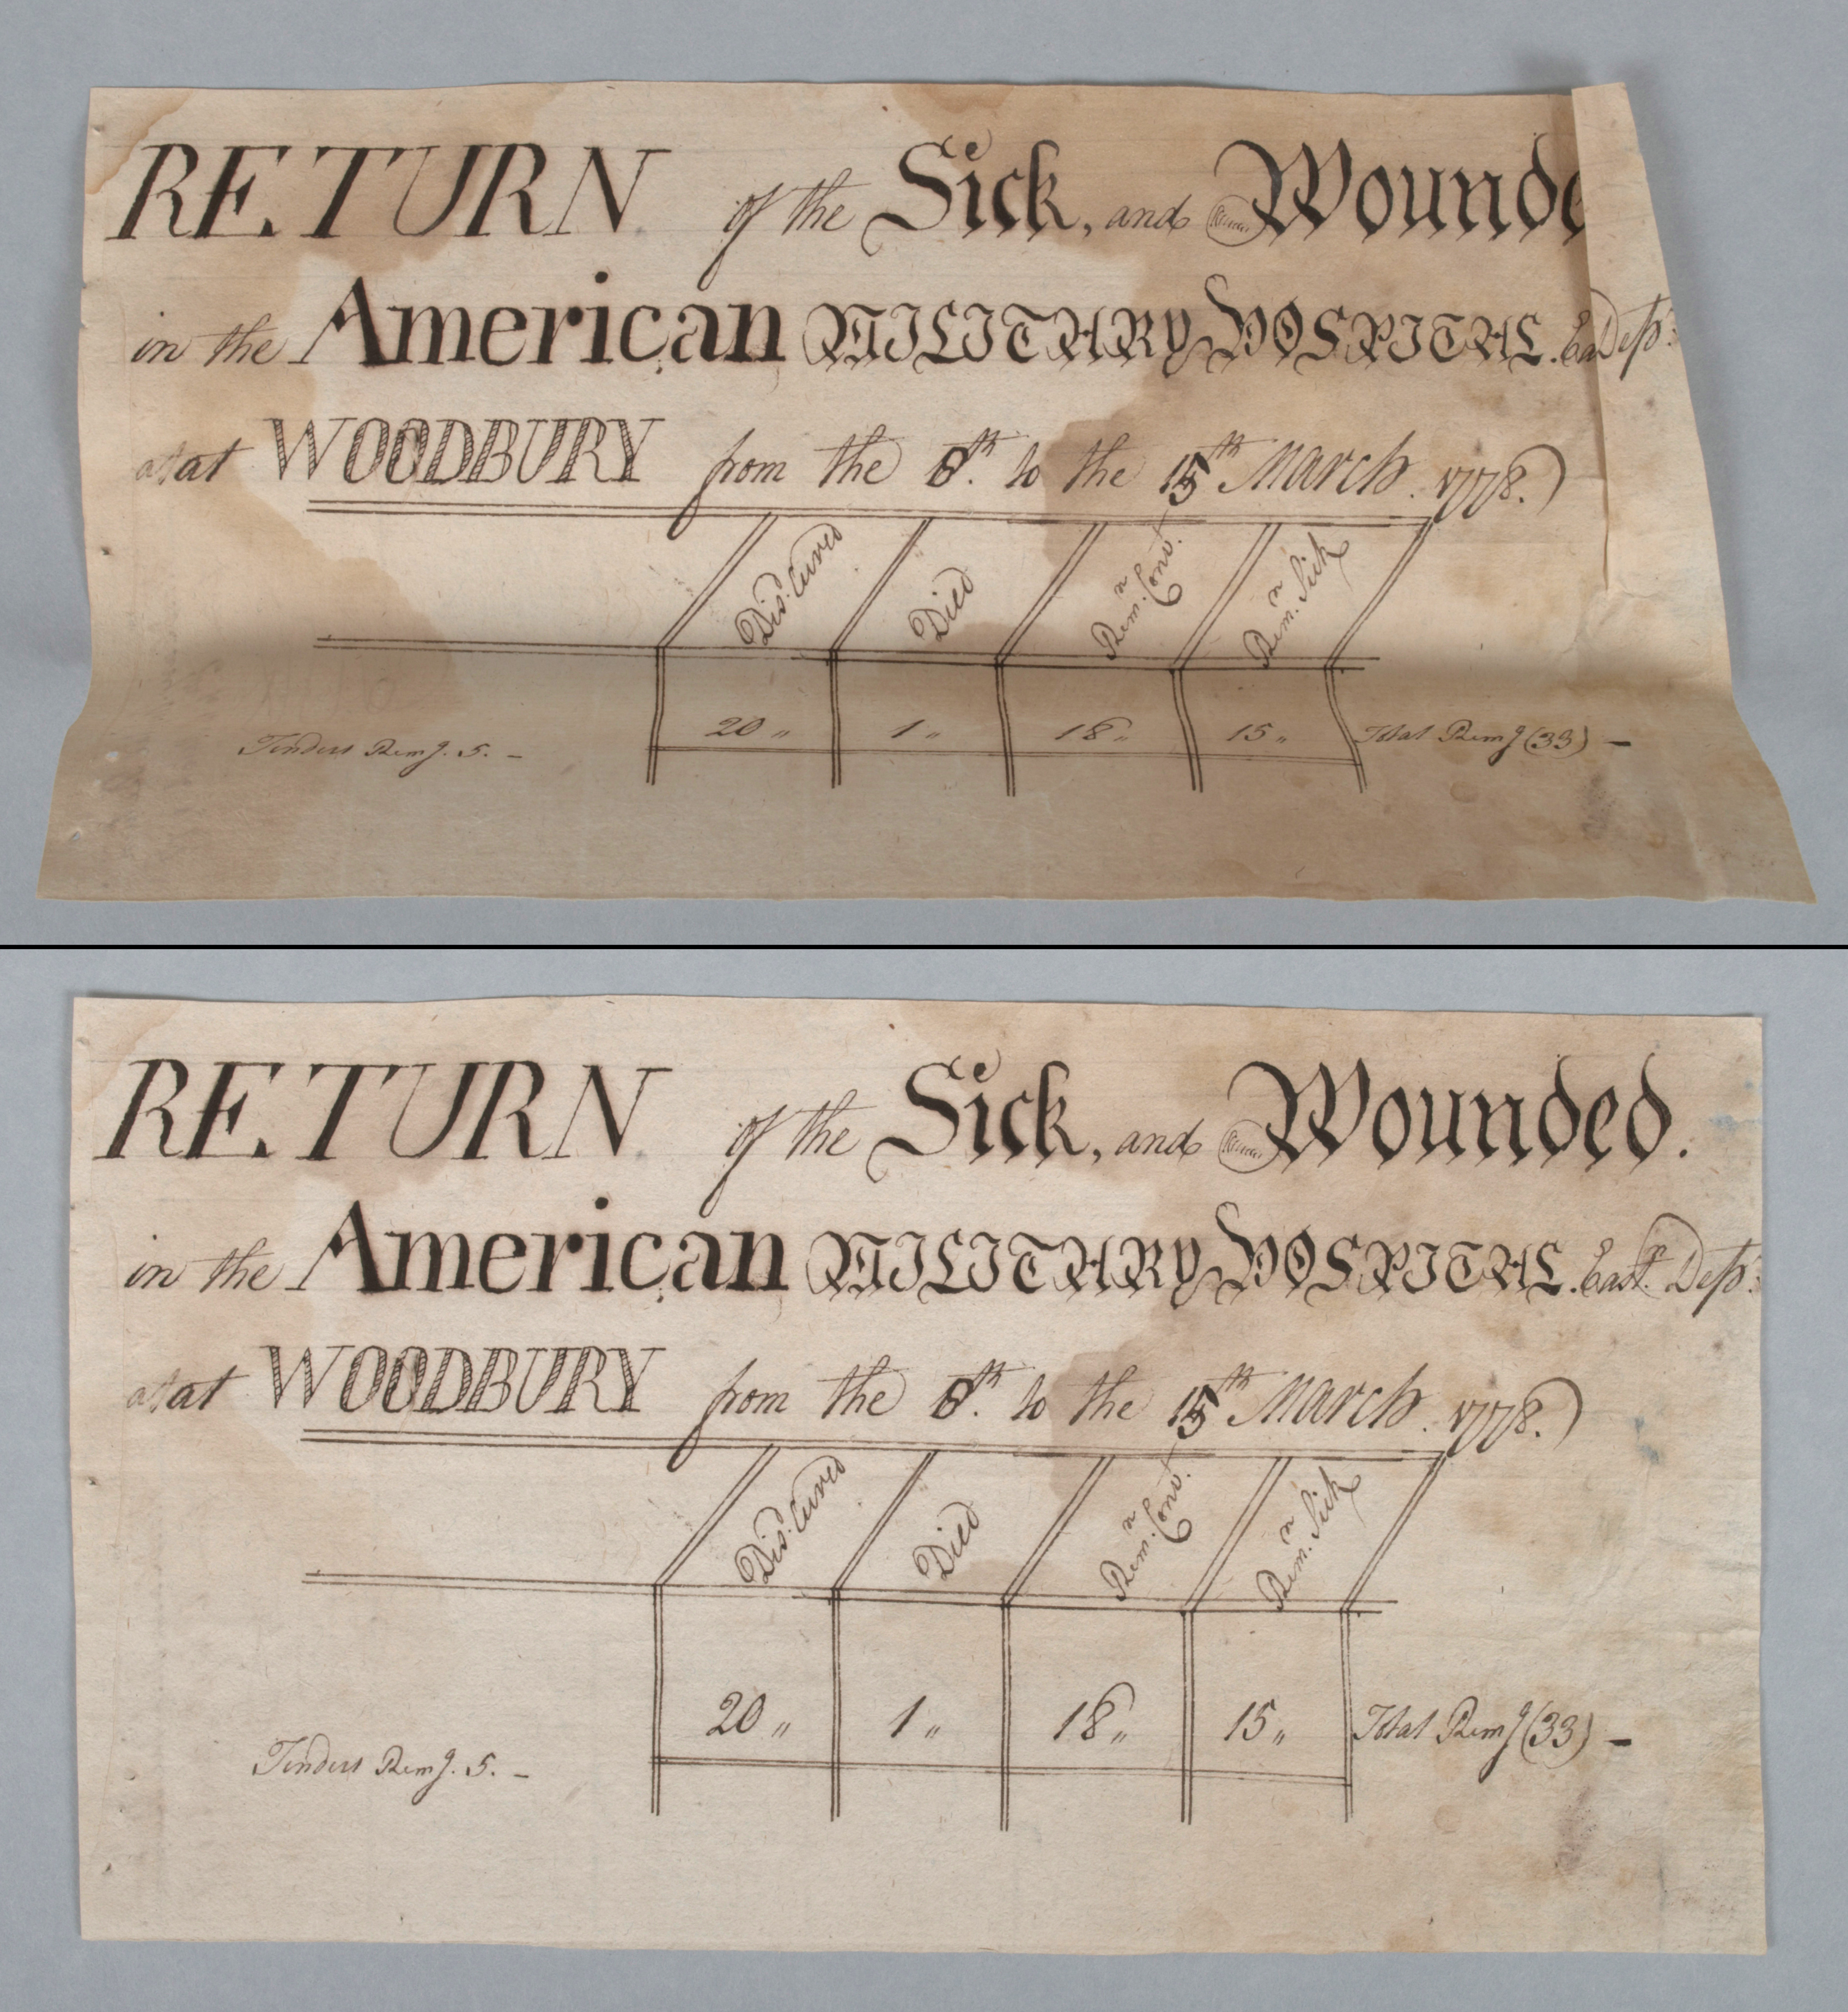 RETURN of the Sick, and Wounde
in the American MILITARY HOSPITAL. Ea Dept:
at at WOODBURY from the 8th. to the 15th March. 1778.)
Dis: Cured
Died
Remn. Conv.
Remn. Sick
20 "
1 "
18 "
15 "
Total Remg (33) —
Tenders Remg. 5. —
RETURN of the Sick, and Wounded.
in the American MILITARY HOSPITAL. East. Dept:
at at WOODBURY from the 8th. to the 15th March. 1778.)
Dis: Cured
Died
Remn. Conv.
Remn. Sick
20 "
1 "
18 "
15 "
Total Remg (33) —
Tenders Remg. 5. —